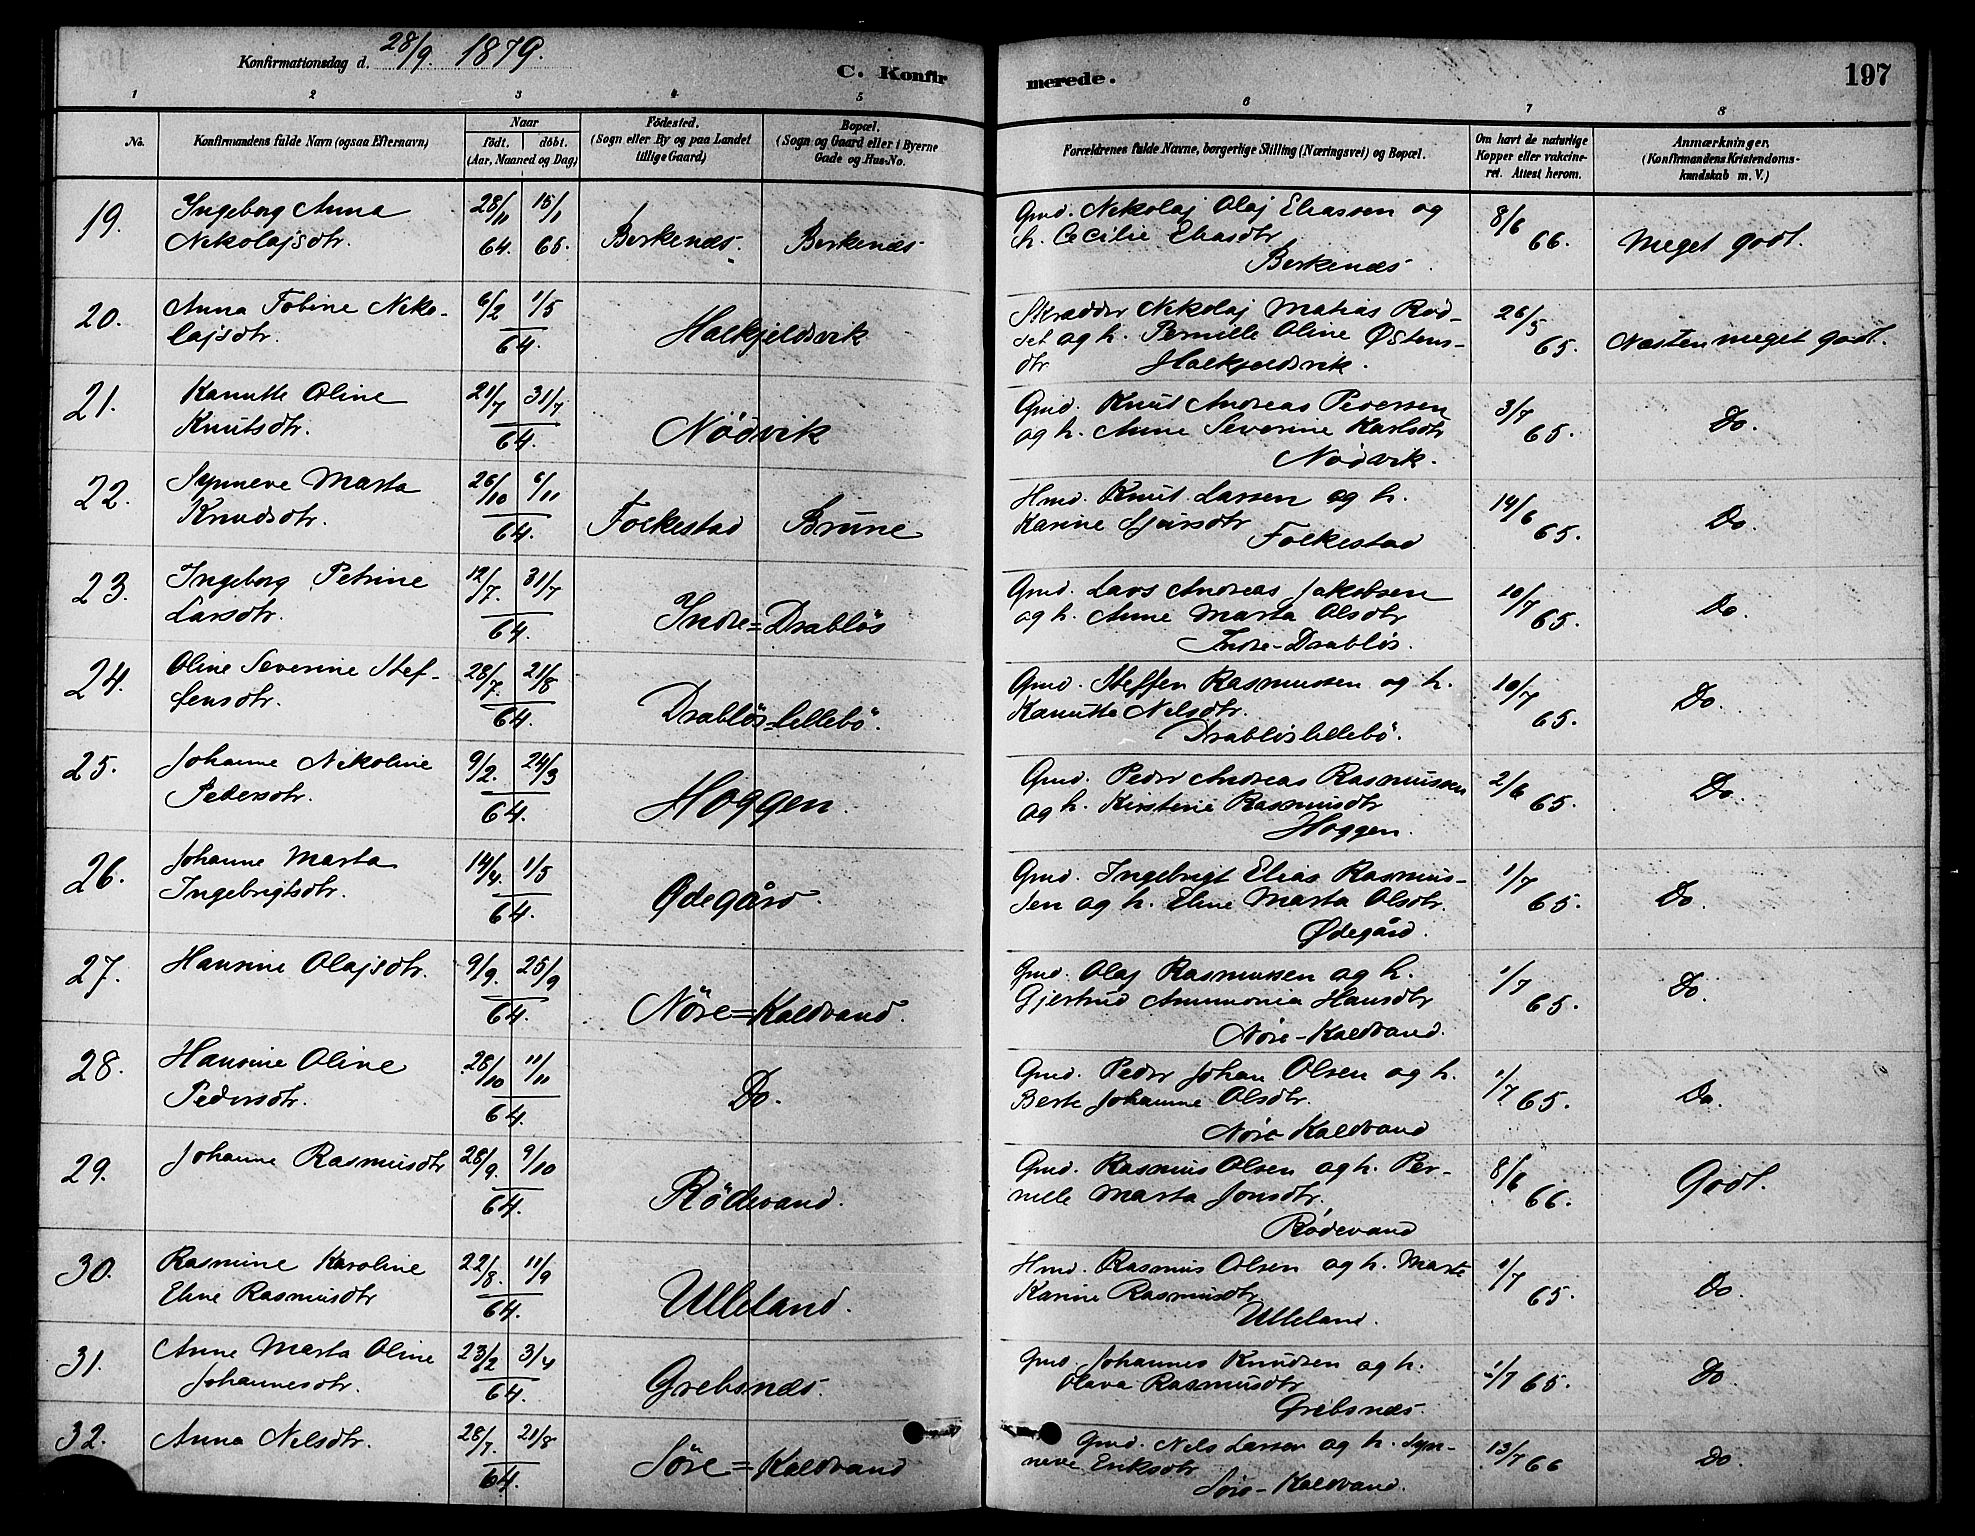 Konfirmationsdag d. 28/9 1879.
C. Konfirmerede.
197
1 2 3 4 5 6 7 8
No.
Konfirmandens fulde Navn (ogsaa Efternavn)
Naar
födt. döbt.
(Aar, Maaned og Dag)
Födested.
(Sogn eller By og paa Landet
tillige Gaard)
Bopæl.
(Sogn og Gaard eller i Byerne
Gade og Hus-No.
Forældrenes fulde Navne, borgerlige Stilling (Næringsvei) og Bopæl.
Om havt de naturlige
Kopper eller vakcine-
ret. Attest herom.
Anmærkninger.
(Konfirmandens Kristendoms-
kundskab m. V.)
19. Ingeborg Anna
Nikolajsdtr.
28/11 64. 15/1 65.
Berkenæs. Berkenæs
Gmd. Nikolaj Olaj Eliassen og
h. Cecilie Eliasdtr
Berkenæs.
8/6 66.
Meget godt.
20. Anna Tobine Niko-
lajsdtr.
6/2 1/5
64.
Halkjeldsvik
Skrædder Nikolaj Matias Rød-
set og h. Pernille Oline Østens-
dtr. Halkjeldsvik.
26/5 65.
Næsten meget godt.
21. Kanutte Oline
Knutsdtr.
21/7 31/7
64.
Nödvik
Gmd. Knut Andreas Pedersen
og h. Anne Severine Karlsdtr
Nödvik.
3/7 65.
Do.
22. Synneve Marta
Knudsdtr.
26/10 6/11
64.
Folkestad Brune
Hmd. Knut Larsen og h.
Karine Sjursdtr
Folkestad
14/6 65.
Do.
23. Ingeborg Petrine
Larsdtr.
12/7. 31/7
64.
Indre=Drabløs
Gmd. Lars Andreas Jakobsen
og h. Anne Marta Olsdtr
Indre-Drabløs.
10/7 65.
Do
24. Oline Severine Stef-
fensdtr.
28/7. 21/8
64.
Drabløs-lillebö.
Gmd. Steffen Rasmussen og h.
Kanutte Nilsdtr.
Drabløslillebö.
10/7 65.
Do
25. Johanne Nikoline
Pedersdtr.
9/2. 24/3
64.
Hoggen.
Gmd. Peder Andreas Rasmussen
og h. Kirstine Rasmusdtr
Hoggen.
2/6 65.
Do
26. Johanne Marta
Ingebrigtsdtr.
14/4. 1/5
64.
Ødegård.
Gmd. Ingebrigt Elias Rasmus-
sen og h. Eline Marta Olsdtr.
Ødegård.
1/7 65.
Do.
27. Hansine Olajsdtr.
9/9. 25/9
64.
Nöre=Kaldvand.
Gmd. Olaj Rasmussen og h.
Gjertrud Ammonia Hansdtr
Nöre-Kaldvand.
1/7 65.
Do.
28. Hansine Oline
Pedersdtr.
28/10 11/11
64.
Do.
Gmd. Peder Johan Olsen og h.
Berte Johanne Olsdtr.
Nöre-Kaldvand
1/7 65.
Do.
29. Johanne Rasmusdtr
28/9. 9/10
64.
Rödevand.
Gmd. Rasmus Olsen og h. Per-
nille Marta Jonsdtr.
Rödevand
8/6 66.
Godt.
30. Rasmine Karoline
Eline Rasmusdtr
22/8. 11/9
64.
Ulleland.
Hmd. Rasmus Olsen og h. Marte
Karine Rasmusdtr.
Ulleland.
1/7 65.
Do.
31. Anne Marta Oline
Johannesdtr.
23/2 3/4
64.
Grebsnæs.
Gmd. Johannes Knudsen og h.
Olava Rasmusdtr
Grebsnæs.
1/7 65.
Do
32. Anna Nilsdtr.
28/7. 21/8
64.
Søre=Kaldvand
Gmd. Nils Larsen og h. Syn-
neve Eriksdtr
Søre-Kaldvand.
13/7 66
Do.